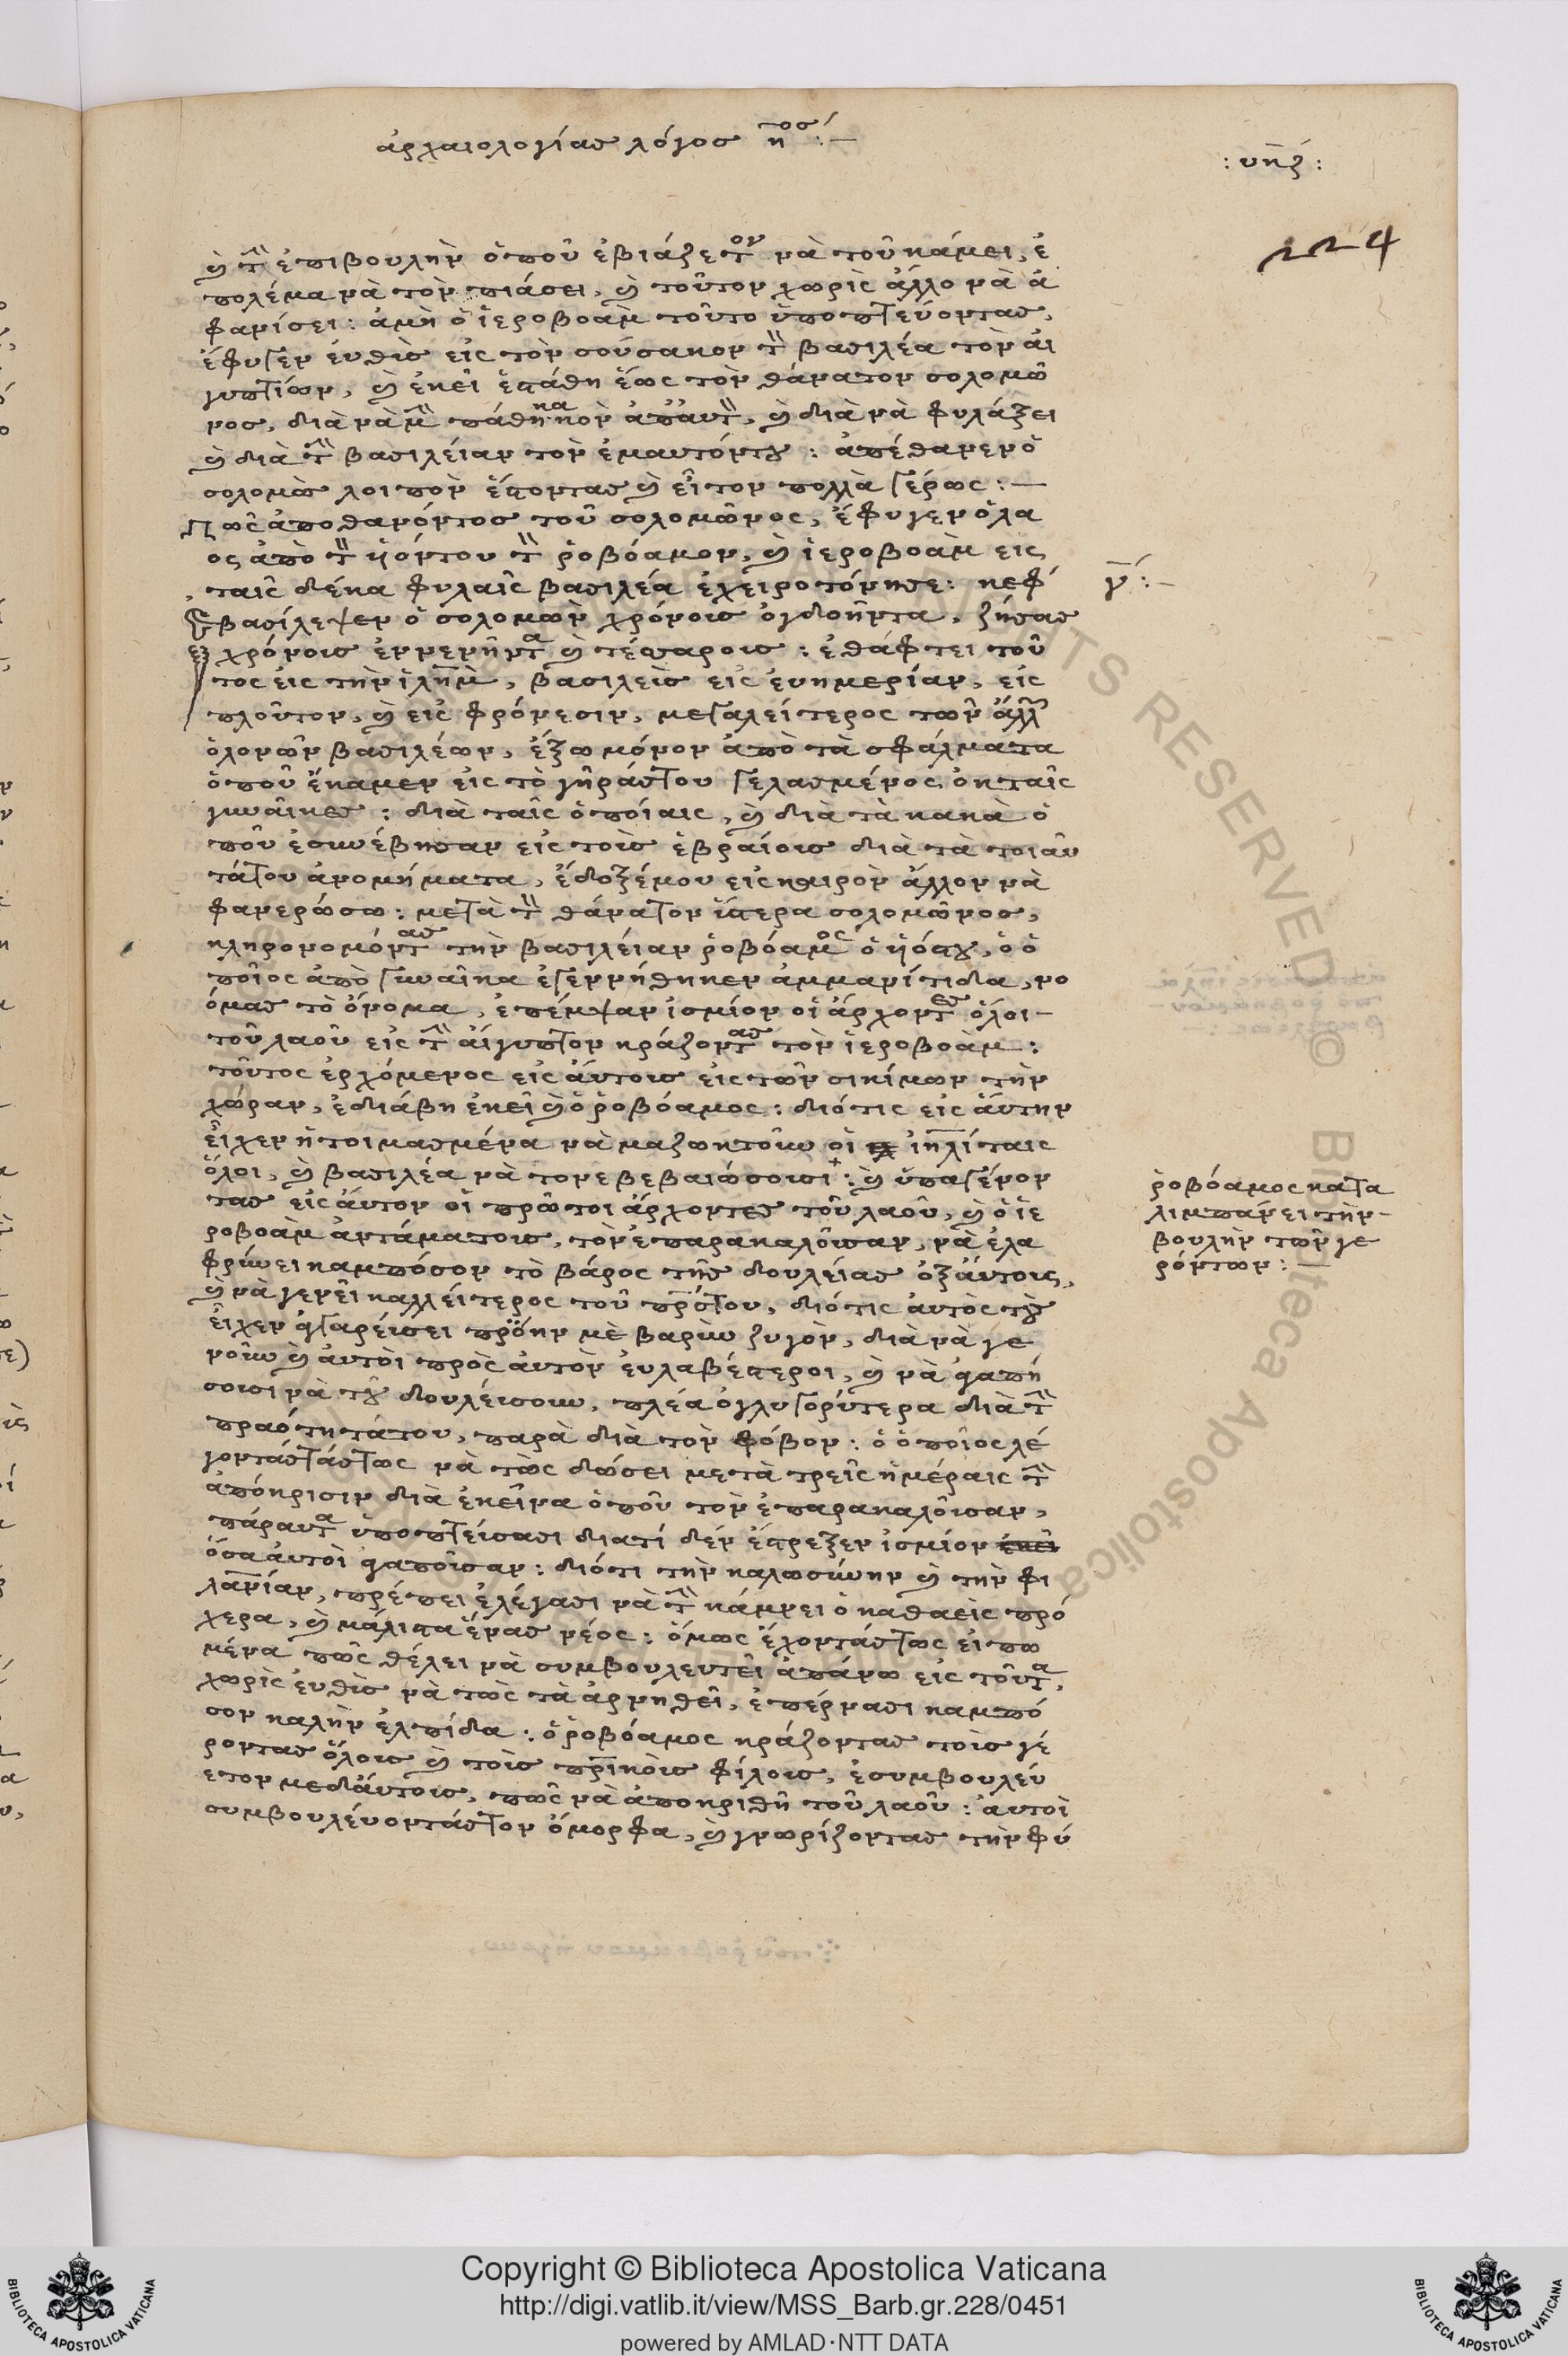 ἀρχαιολογίας λόγος η^ος :—
: υπζ :
224
ὲ τὴν ἐπιβουλὴν ὁποῦ ἐβιάζετον νὰ τοῦ κάμει, ἐ
πολέμα νὰ τὸν πιάσει, ὲ τοῦτον χωρὶς ἄλλο νὰ ἀ
φανίσει : ἀμὴ ὁ ἱεροβοὰμ τοῦτο ὑποπτεύοντας,
ἔφυγεν εὐθὺς εἰς τὸν σούσακον τὸν βασιλέα τὸν αἰ
γυπτίων, ὲ ἐκεῖ ἐστάθη ἕως τὸν θάνατον σολομῶ
νος, διὰ νὰ μὴν πάθη κακὸν ἀπ' αὐτὸν, ὲ διὰ νὰ φυλάξει
ὲ διὰ τὴν βασιλείαν τὸν ἐμαυτόντου : ἀπέθανεν ὁ
σολομὼν λοιπὸν ἔστοντας ὲ εἶτον πολλὰ γέρως :—
Πῶς ἀποθανόντος τοῦ σολομῶνος, ἔφυγεν ὁ λα
ος ἀπὸ τὸν ὑιόντου τὸν ῥοβόαμον, ὲ ἱεροβοὰμ εις
ταῖς δέκα φυλαῖς βασιλέα ἐχειροτόνησε : κεφ
γ :—
Ἐβασίλεψεν ὁ σολομὼν χρόνους ὀγδοῆντα, ζήσας
χρόνους ἐννενῆντα ὲ τέσσαρους : ἐθάφτει τοῦ
τος εἰς τὴν ἱλημ, βασιλεὺς εἰς εὐημερίαν, εἰς
πλοῦτον, ὲ εἰς φρόνεσιν, μεγαλείτερος τῶν ἄλλων
ὁλονῶν βασιλέων, ἔξω μόνον ἀπὸ τὰ σφάλματα
ὁποῦ ἔκαμεν εἰς τὸ γῆράςτου γελασμένος ὀκ ταῖς
γυναῖκες : διὰ ταῖς ὁποίαις, ὲ διὰ τὰ κακὰ ὁ
ποῦ ἐσυνέβησαν εἰς τοὺς ἑβραίους διὰ τὰ τοιαῦ
τάτου ἀνομήματα, ἔδοξέμου εἰς καιρὸν ἄλλον νὰ
φανερώσω : μετὰ τὸν θάνατον ὕστερα σολομῶνος,
κληρονομόντας τὴν βασιλείαν ῥοβόαμος ὁ ὑιόςτου, ὁ ὁ
ποῖος ἀπὸ γυναῖκα ἐγεννήθηκεν ἀμμανίτιδα, νο
όμας τὸ ὄνομα, ἐπέμψαν ἰσμίον οἱ ἄρχοντες ὅλοι
τοῦ λαοῦ εἰς τὴν αἴγυπτον κράζοντας τὸν ἱεροβοὰμ :
τοῦτος ἐρχόμενος εἰς αὐτους εἰς τῶν σικίμων τὴν
χώραν, ἐδιάβη ἐκεῖ ὲ ὁ ῥοβόαμος : διότις εἰς αὐτην
εἶχεν ἡτοιμασμένα νὰ μαζωκτοῦν οἱ ἰηλίταις
ὅλοι, ὲ βασιλέα νὰ τονε βεβαιώσουσι+ : ὲ ὑπαγένον
τας εἰς αὐτον οἱ πρῶτοι ἄρχοντες τοῦ λαοῦ, ὲ ὁ ἱε
ροβοὰμ ἀντάματους, τὸν ἐπαρακαλοῦσαν, νὰ ἐλα
φρύνει καμπόσον τὸ βάρος τῆς δουλείας ὀξ αὐτους,
ὲ νὰ γενεῖ καλλείτερος τοῦ πρ̅ότου, διότις αὐτὸς τοὺς
εἶχεν φταρείσει πρὅην μὲ βαρὺν ζυγὸν, διὰ νὰ γε
νοῦν ὲ αὐτοὶ πρὸς αὐτὸν εὐλαβέστεροι, ὲ νὰ ἀγαπή
σουσι νὰ τοῦ δουλεύσουν, πλέα ὀγλυγορύτερα διὰ τὴν
πραότητάτου, παρὰ διὰ τὸν φόβον : ὁ ὁποῖος λέ
γονταςτάςτως νὰ τῶς δώσει μετὰ τρεῖς ἡμέραις τὴν
ἀπόκρισιν διὰ ἐκεῖνα ὁποῦ τὸν ἐπαρακαλοῦσαν,
πάραυτα ὑποπτεύσασι διατί δὲν ἔστρεξεν ἰσμίον
ὅσα αὐτοὶ ἀγαποῦσαν : διότι τὴν καλωσύνην ὲ τὴν φι
λαν̅ίαν, πρέπει ἐλέγασι νὰ τὴν κάμνει ὁ καθαεὶς πρό
χερα, ὲ μάλιστα ἕνας νέος : ὅμως ἔχοντάςτως εἰπω
μένα πῶς θέλει νὰ συμβουλευτεῖ ἀπάνω εἰς τοῦτα,
χωρὶς εὐθὺς νὰ τῶς τὰ ἀρνηθεῖ, ἐπέρνασι καμπό
σον καλὴν ἐλπίδα : ὁ ῥοβόαμος κράζοντας τοὺς γέ
ροντας ὅλους ὲ τοὺς πρ̅ικοὺς φίλους, ἐσυμβουλεύ
ετον μεδαύτους, πῶς νὰ ἀποκριθῆ τοῦ λαοῦ : αὐτοὶ
συμβουλεύοντάςτον ὄμορφα, ὲ γνωρίζοντας τὴν φύ
ῥοβόαμος κατα
λιμπάνει τὴν
βουλὴν τῶν γε
ρόντων :—
Copyright © Biblioteca Apostolica Vaticana
http://digi.vatlib.it/view/MSS_Barb.gr.228/0451
powered by AMLAD·NTT DATA